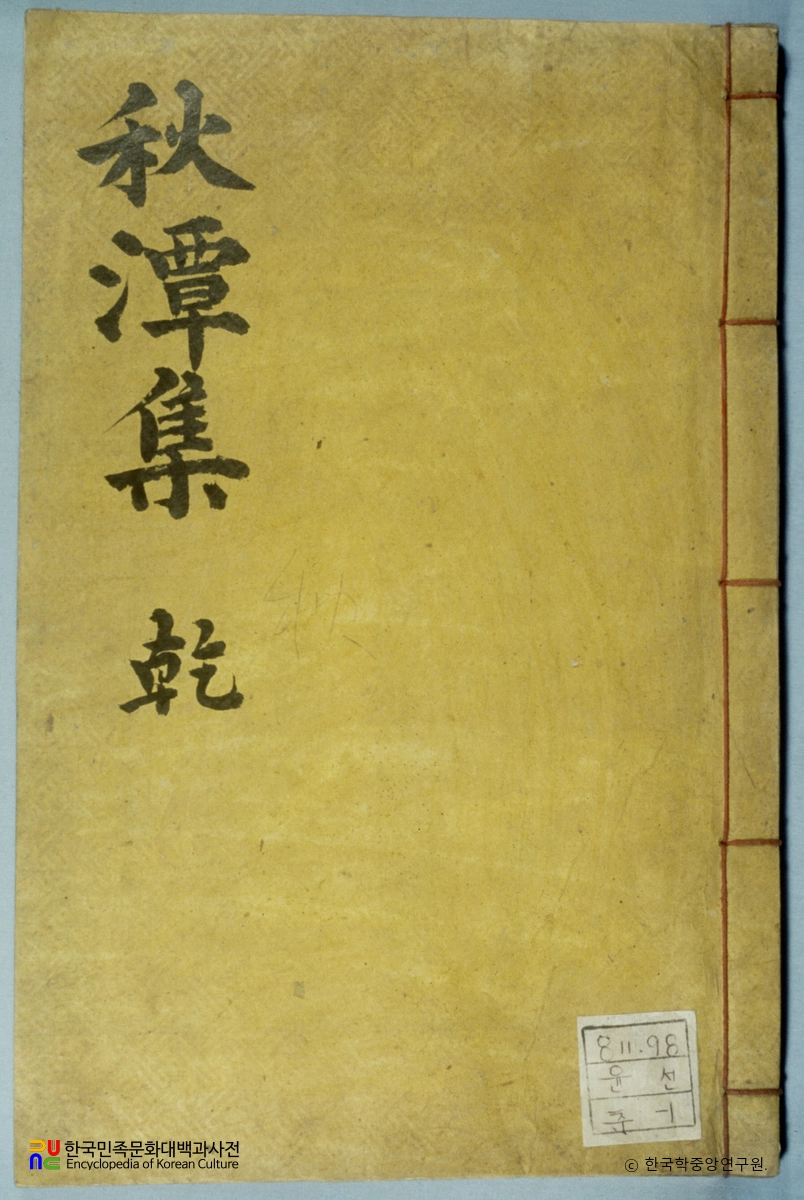 秋潭集 乾
811.98
윤 선
추 -1
한국민족문화대백과사전
Encyclopedia of Korean Culture
© 한국학중앙연구원.